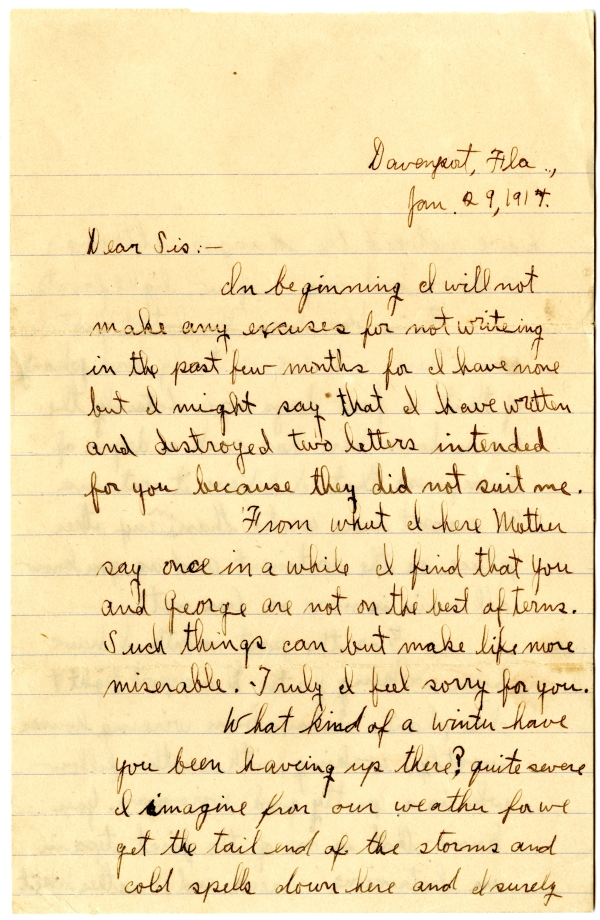 Davenport, Fla.,
Jan. 29, 1914.
Dear Sis:—
In beginning I will not
make any excuses for not writeing
in the past few months for I have none
but I might say that I have written
and destroyed two letters intended
for you because they did not suit me.
From what I here Mother
say once in a while I find that you
and George are not on the best of terms.
Such things can but make life more
miserable. Truly I feel sorry for you.
What kind of a winter have
you been haveing up there? quite severe
I imagine from our weather for we
get the tail end of the storms and
cold spells down here and I surely